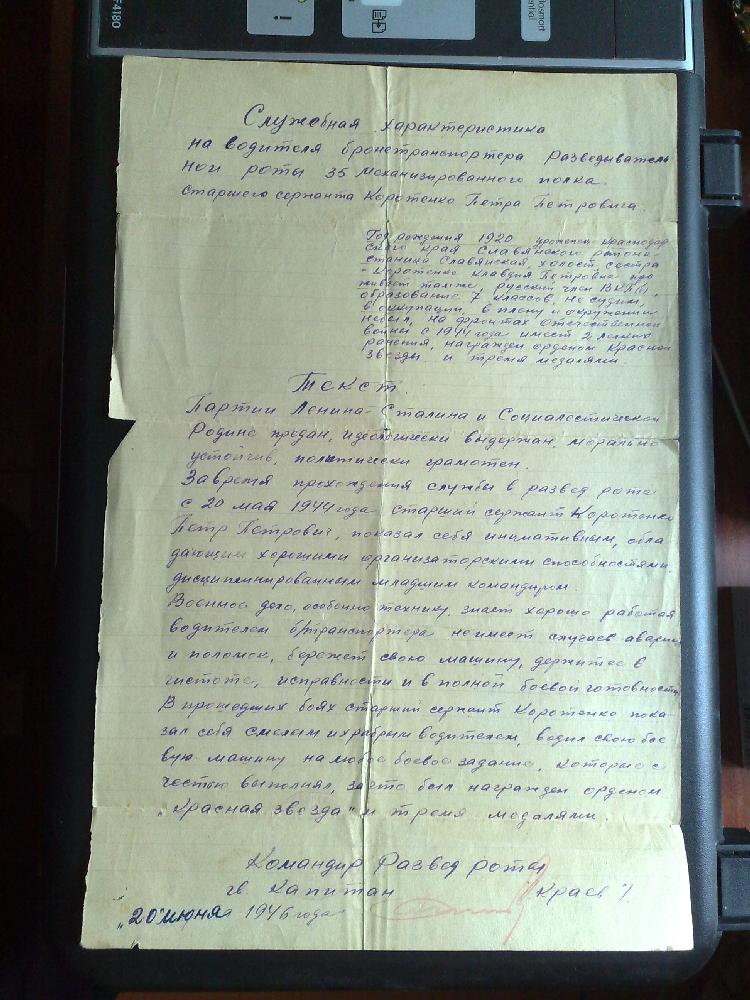 4180
Служебная характеристика
на водителя бронетранспортера разведыватель
ной роты 35 механизированного полка
старшего сержанта Коротенко Петра Петровича.
Год рождения 1920 уроженец Краснодар
ского края Славянского района
станица Славянская, холост, сестра
- Коротенко Клавдия Петровна про
живает там же, русский член ВКП(б),
образование 7 классов, не судим,
в оккупации, в плену и окружении
небыл, на фронтах отечественной
войны с 1944 года имеет 2 легких
ранения, награжден орденом Красной
звезды и тремя медалями.
Текст.
Партии Ленина-Сталина и Социалестической
Родине предан, идеологически выдержан, морально
устойчив, политически грамотен.
За время прохождения службы в развед роте
с 20 мая 1944 года старший сержант Коротенко
Петр Петрович, показал себя инициативным, обла
дающим хорошими организаторскими способностями,
дисциплинированным младшим командиром.
Военное дело, особенно технику, знает хорошо работая
водителем б/транспортера не имеет случаев аварии
и поломок, бережет свою машину, держит ее в
чистоте, исправности и в полной боевой готовности
В прошедших боях старший сержант Коротенко пока
зал себя смелым и храбрым водителем, водил свою бое
вую машину на любое боевое задание, которые с
честью выполнял, за что был награжден орденом
„Красная звезда" и тремя медалями.
Командир Развед роты
гв. Капитан Краев
„20" июня 1946 года